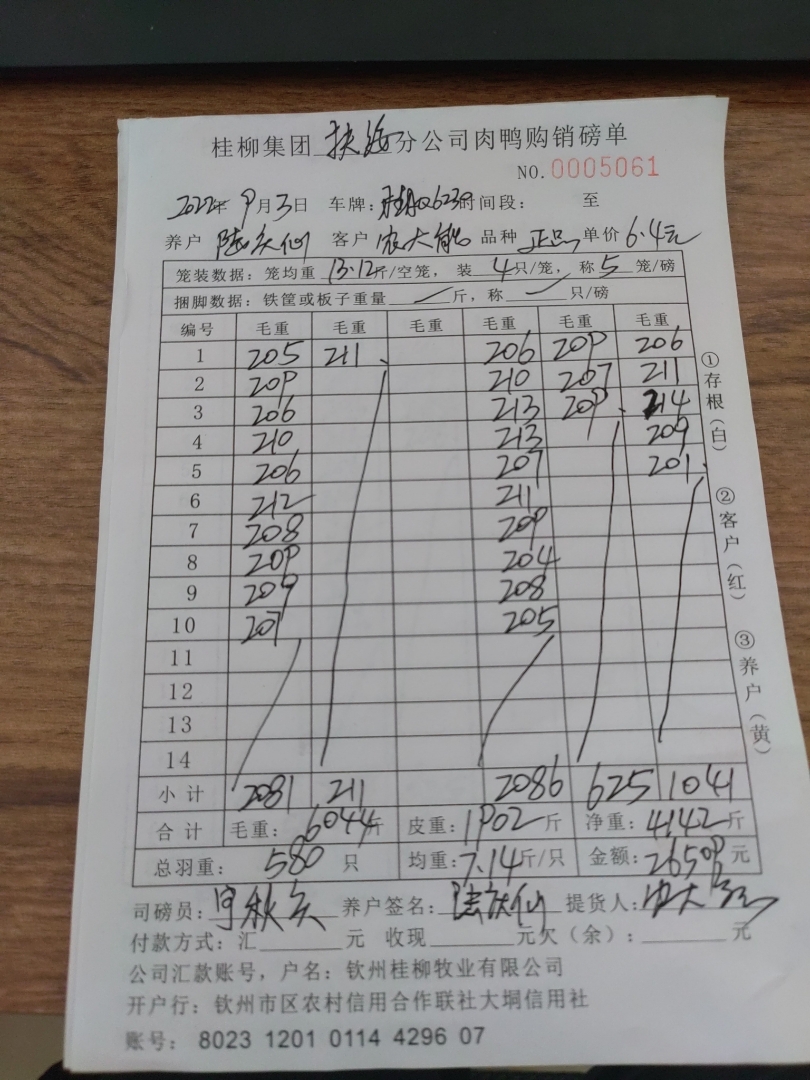 桂柳集团 扶绥 分公司肉鸭购销磅单
NO. 0005061
2022年 9月3日 车牌: 时间段: 至
养户 陆庆仙 客户 农大能 品种 正品 单价 6.4元
笼装数据: 笼均重 13.12斤/空笼, 装 4只/笼, 称 5 笼/磅
捆脚数据: 铁筐或板子重量 斤, 称 只/磅
编号 毛重 毛重 毛重 毛重 毛重 毛重
1 205 211 206 209 206
2 209 210 207 211
3 206 213 209 214
4 210 213 209
5 206 207 201
6 212 211
7 208 209
8 209 204
9 209 208
10 207 205
11
12
13
14
小计 2081 211 2086 625 1041
合计 毛重: 6044斤 皮重: 1902斤 净重: 4142斤
总羽重: 580 只 均重: 7.14斤/只 金额: 26509元
司磅员: 养户签名: 陆庆仙 提货人: 农大能
付款方式: 汇 元 收现 元欠(余): 元
公司汇款账号, 户名: 钦州桂柳牧业有限公司
开户行: 钦州市区农村信用合作联社大垌信用社
账号: 8023 1201 0114 4296 07
①存根(白)
②客户(红)
③养户(黄)